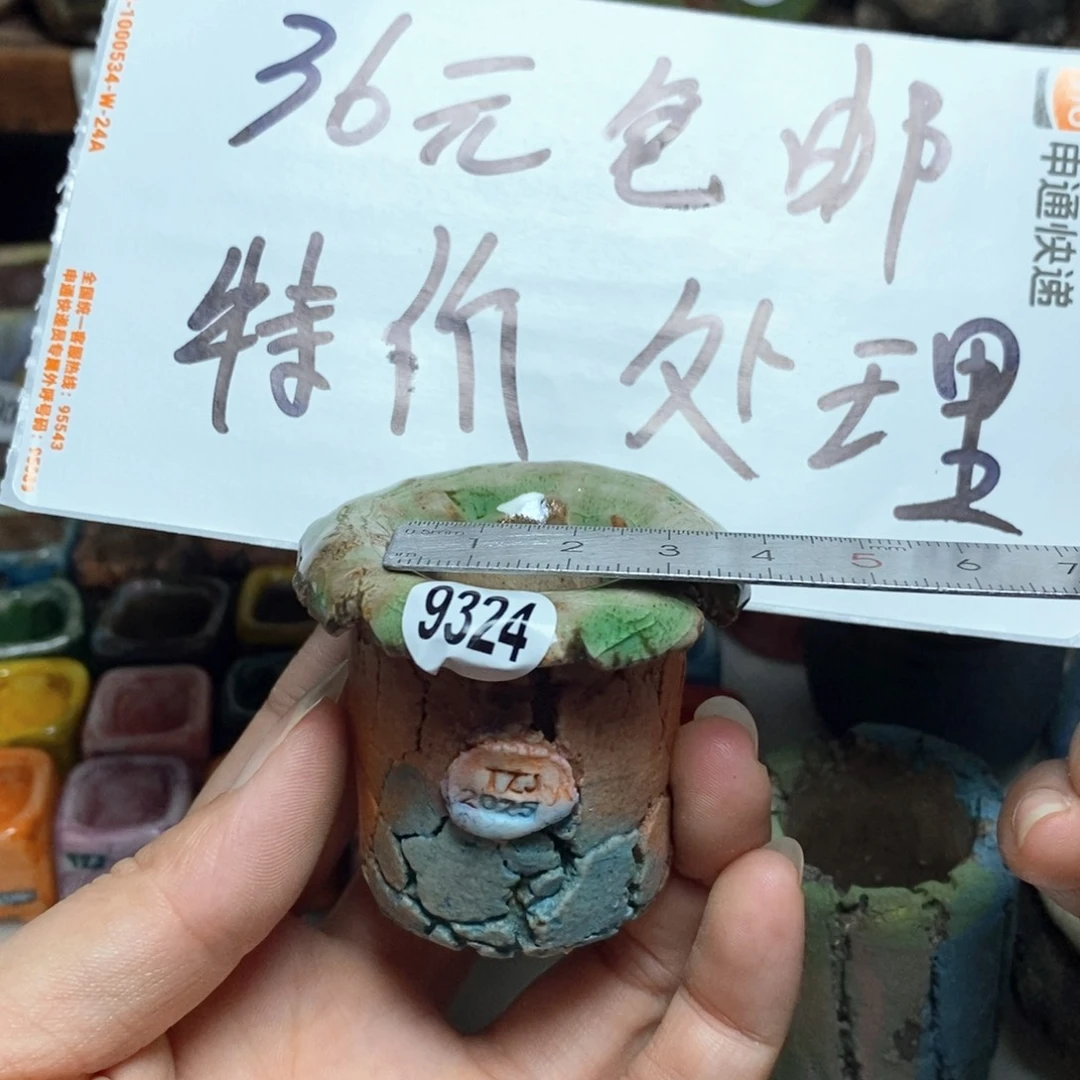 36元包邮
特价处理
-1000534-W-24A
全国统一客服热线：95543
申通快递员专属外呼号码：
申通快递
0.5mm 1 2 3 4 5 6 7
mm
9324
TZJ
2025